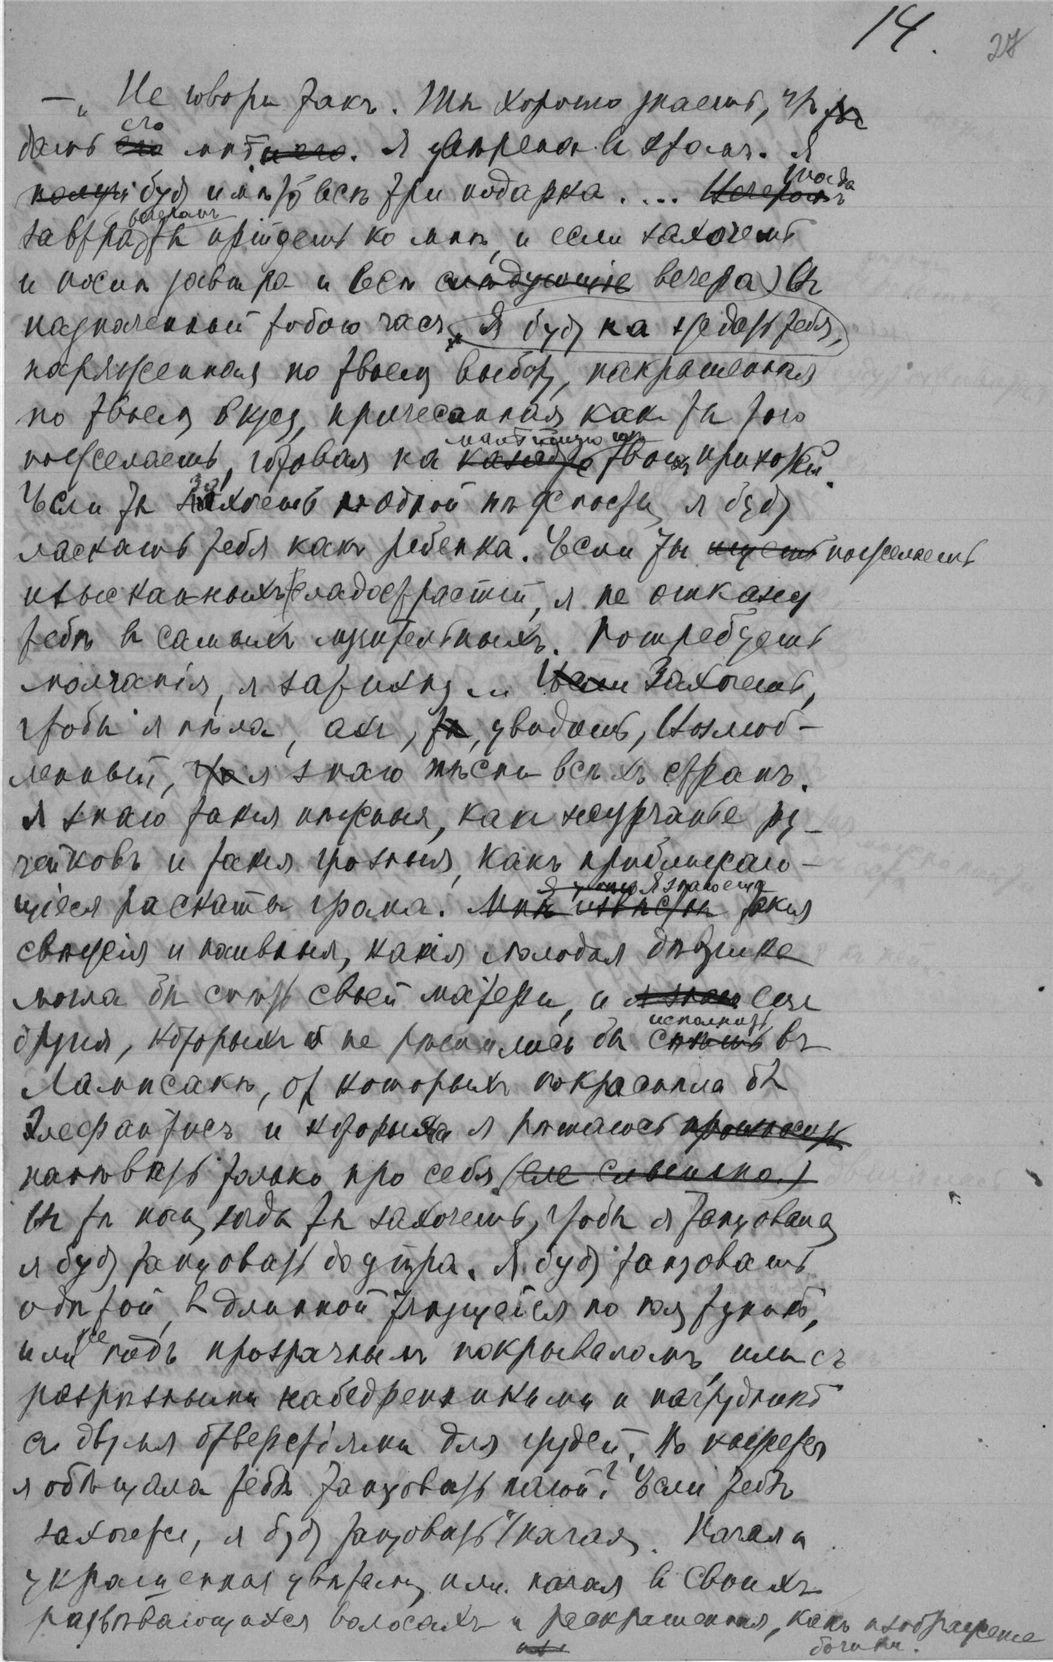 14.
28
— „ Не говори такъ. Ты хорошо знаешь, что
дашь его мнѣ. Я увѣрена въ этомъ. Я
буду имѣть всѣ три подарка . . . . тогда
вечеромъ
завтра ты прійдешь ко мнѣ, и если захочешь
и после завтра и всѣ слѣдующіе вечера) въ
назначенный тобою часъ. Я буду на ждать тебя,
наряженная по твоему выбору, накрашенная
по твоему вкусу, причесанная какъ ты того
пожелаешь, готовая на твои прихоти.
Если ты захочешь одной нѣжности, я буду
ласкать тебя какъ ребенка. Если ты пожелаешь
изысканныхъ сладострастій, я не откажу
тебѣ въ самыхъ мучительныхъ. Потребуешь
молчанія, я затихну ... Если Захочешь,
чтобы я пѣла, ахъ, ты, увидишь, Возлюб-
ленный, что я знаю пѣсни всѣхъ странъ.
Я знаю такія нѣжныя, какъ журчанье ру-
чейковъ и такія грозныя, какъ приближаю-
щіеся раскаты грома. Мнѣ извѣстны такія
Я знаю еще
свѣжія и наивныя, какія молодая дѣвушка
могла бы спѣть своей матери, и я знаю еще
другія, которыхъ я не рѣшилась бы спѣть въ
исполнить
Лампсакѣ, от которыхъ покраснѣла бы
Элефантисъ и которыя я рѣшаюсь
напѣвать только про себя (еле слышно.)
Въ ту ночь, когда ты захочешь, чтобы я танцовала,
я буду танцовать до утра. Я буду танцовать
одѣтой, въ длинной тянущейся по полу туникѣ,
или же подъ прозрачнымъ покрываломъ, или съ
разрѣзными набедренниками и нагрудникѣ
съ двумя отверстіями для грудей. Но
я обѣщала тебѣ танцовать нагой? Если тебѣ
захочется, я буду танцовать нагая. Нагая и
украшенная цвѣтами, или нагая въ своихъ
развѣвающихся волосахъ и раскрашенная, какъ изображеніе
богини.